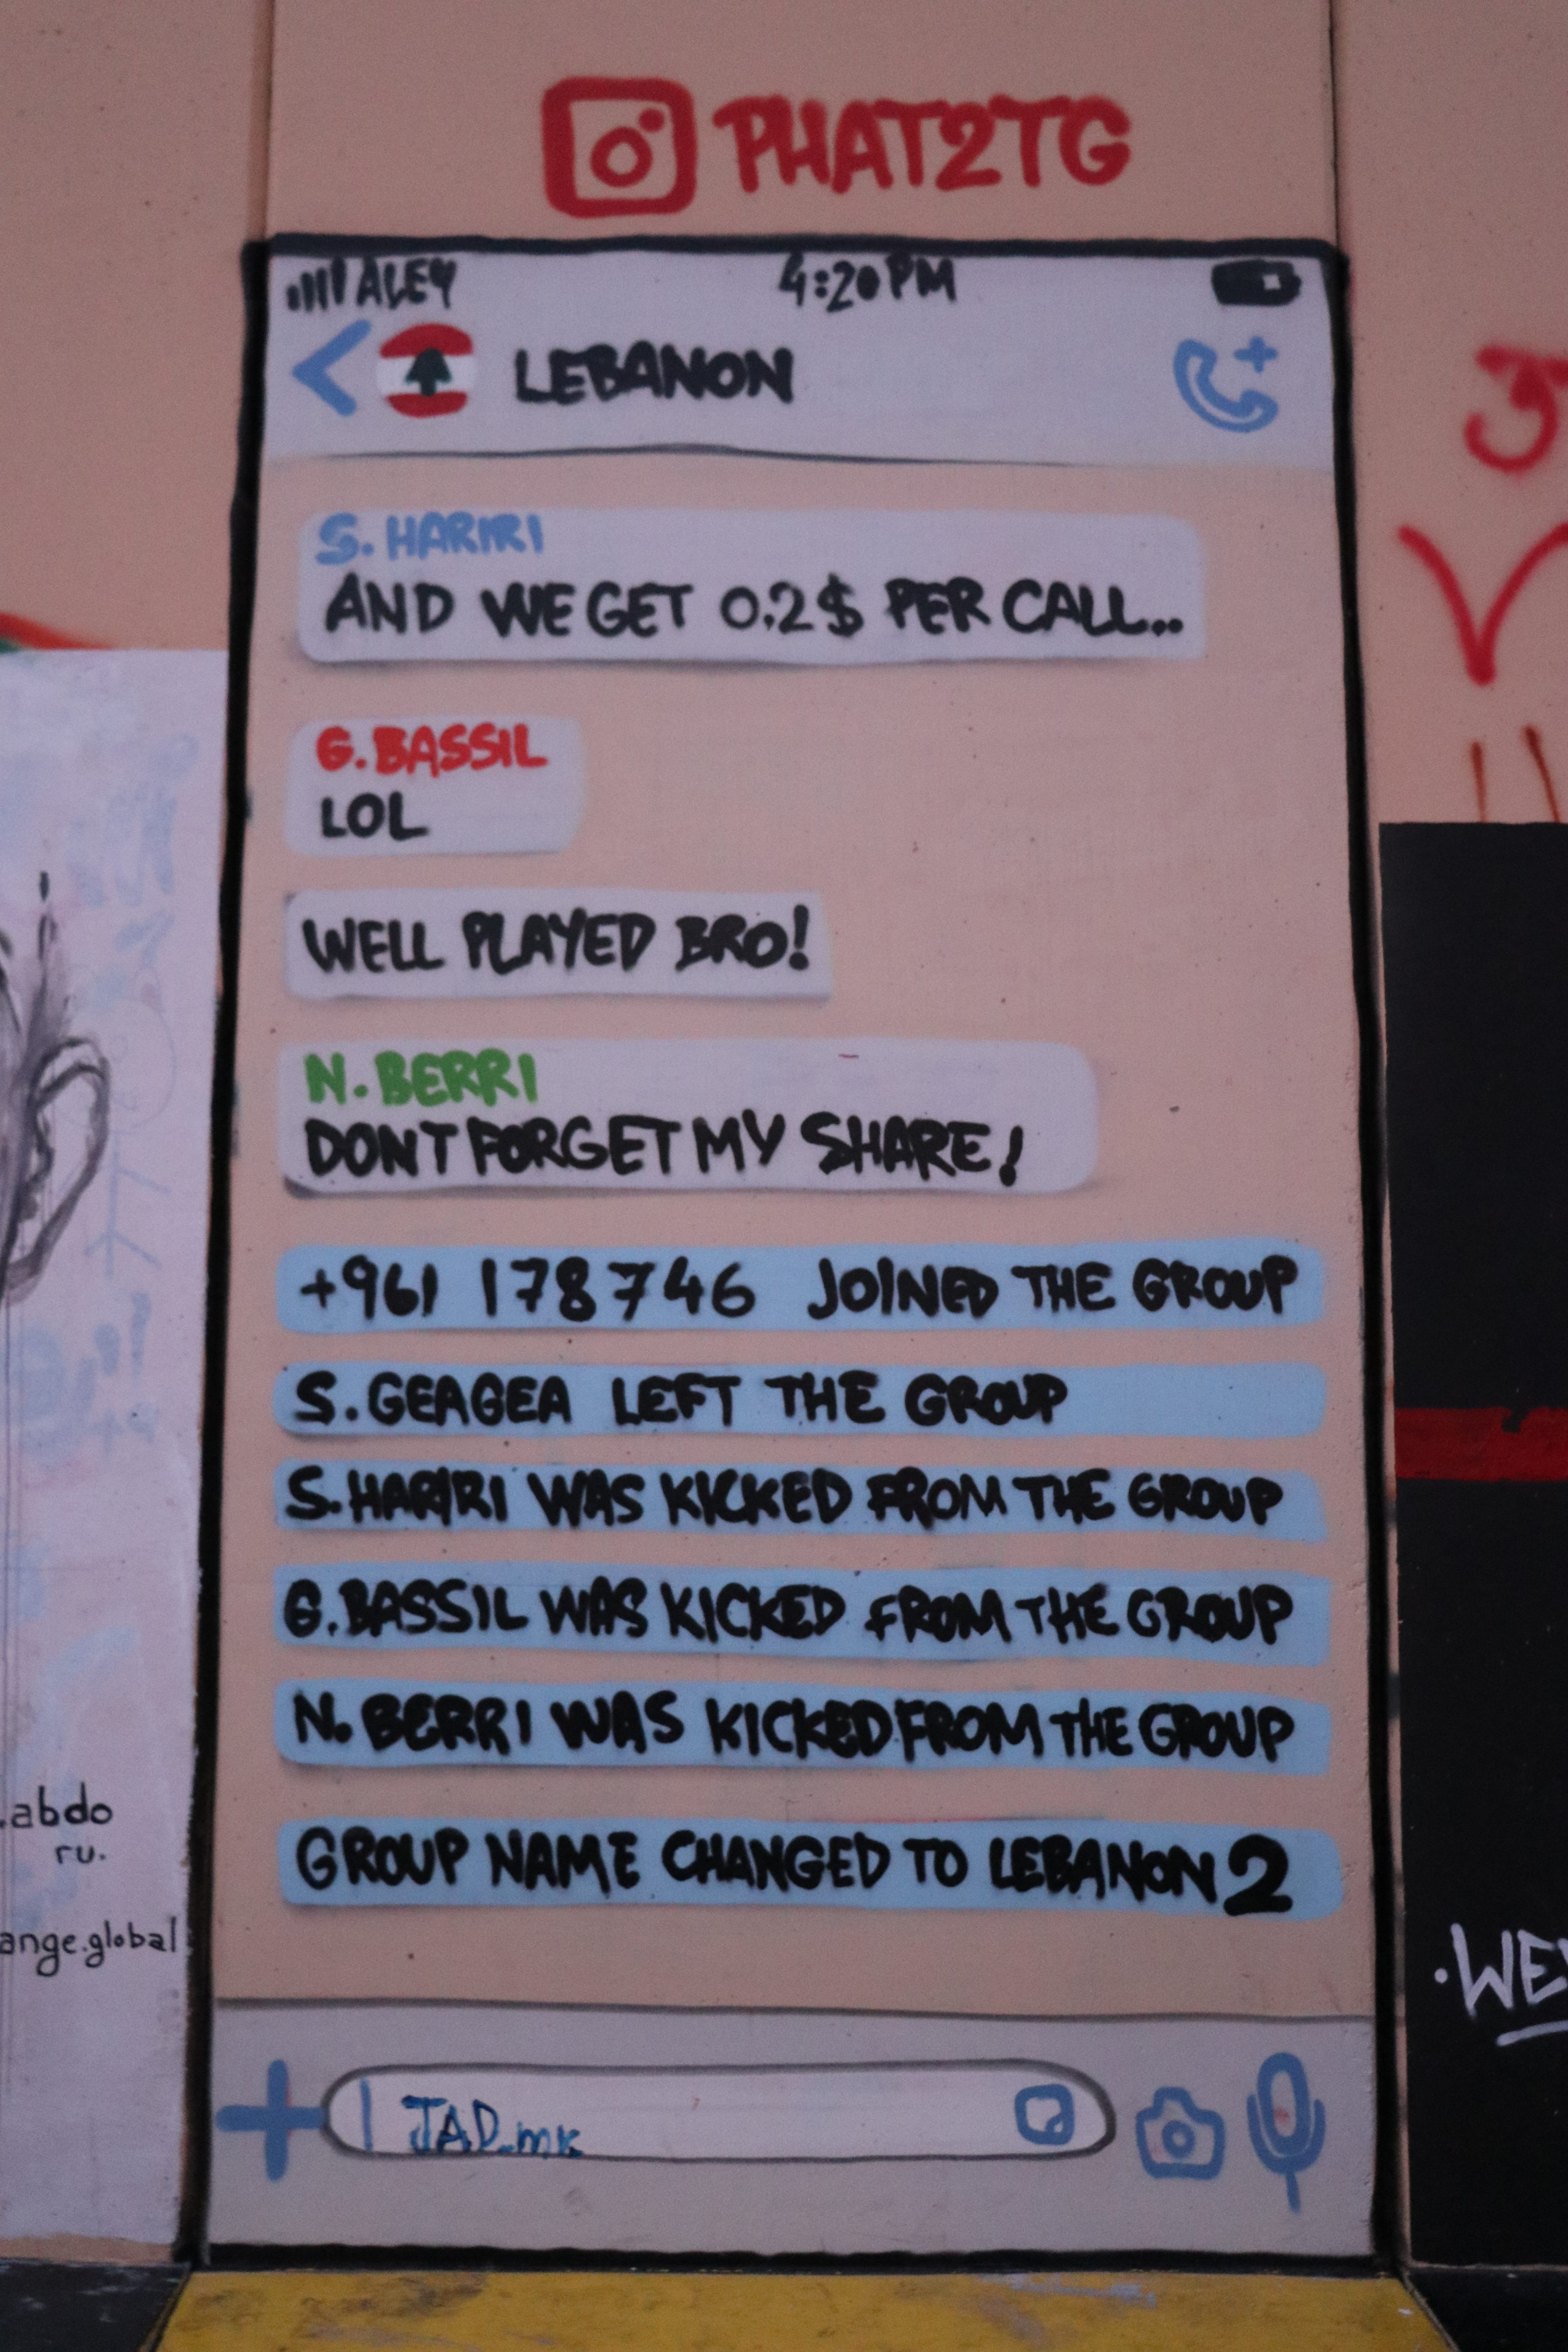 PHAT2TG
ALEY 4:20 PM
LEBANON
S. HARIRI
AND WE GET 0.2$ PER CALL..
G. BASSIL
LOL
WELL PLAYED BRO!
N. BERRI
DONT FORGET MY SHARE!
+961 178746 JOINED THE GROUP
S. GEAGEA LEFT THE GROUP
S. HARIRI WAS KICKED FROM THE GROUP
G. BASSIL WAS KICKED FROM THE GROUP
N. BERRI WAS KICKED FROM THE GROUP
GROUP NAME CHANGED TO LEBANON 2
JAD_mk
.abdo
ru.
ange.global